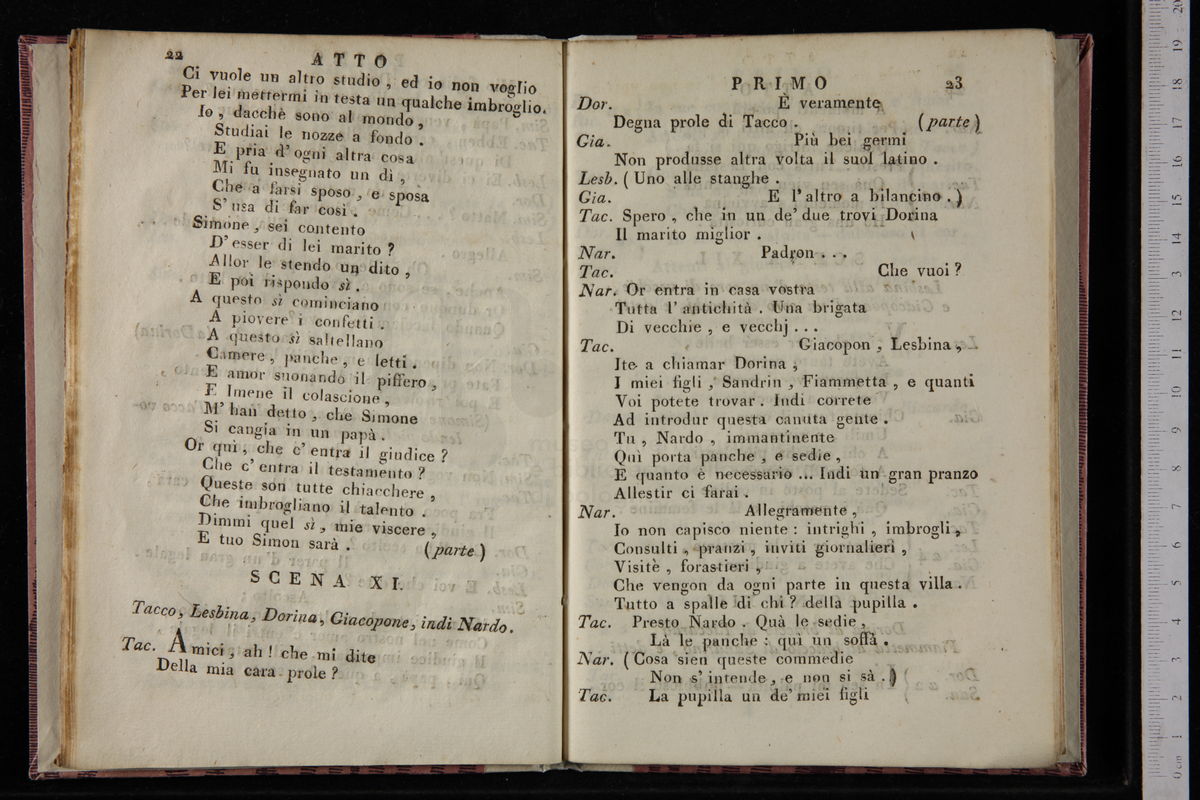 22
ATTO
Ci vuole un altro studio , ed io non voglio
Per lei mettermi in testa un qualche imbroglio.
Io , dacchè sono al mondo ,
Studiai le nozze a fondo .
E pria d' ogni altra cosa
Mi fu insegnato un dì ,
Che a farsi sposo , e sposa
S' usa di far così .
Simone , sei contento
D' esser di lei marito ?
Allor le stendo un dito ,
E poi rispondo sì .
A questo sì cominciano
A piovere i confetti
A questo sì saltellano
Camere , panche , e letti .
E amor suonando il piffero ,
E Imene il colascione ,
M' han detto , che Simone
Si cangia in un papà .
Or quì , che c' entra il giudice ?
Che c' entra il testamento ?
Queste son tutte chiacchere ,
Che imbrogliano il talento .
Dimmi quel sì , mie viscere ,
E tuo Simon sarà . (parte)
SCENA XI.
Tacco, Lesbina, Dorina, Giacopone, indi Nardo.
Tac. Amici , ah ! che mi dite
Della mia cara prole ?
PRIMO 23
Dor. È veramente
Degna prole di Tacco . (parte)
Gia. Più bei germi
Non produsse altra volta il suol latino .
Lesb. ( Uno alle stanghe .
Gia. E l' altro a bilancino . )
Tac. Spero , che in un de' due trovi Dorina
Il marito miglior .
Nar. Padron . . .
Tac. Che vuoi ?
Nar. Or entra in casa vostra
Tutta l' antichità . Una brigata
Di vecchie , e vecchj . . .
Tac. Giacopon , Lesbina ,
Ite a chiamar Dorina ,
I miei figli , Sandrin , Fiammetta , e quanti
Voi potete trovar . Indi correte
Ad introdur questa canuta gente .
Tu , Nardo , immantinente
Quì porta panche , e sedie ,
E quanto è necessario ... Indi un gran pranzo
Allestir ci farai .
Nar. Allegramente ,
Io non capisco niente : intrighi , imbrogli ,
Consulti , pranzi , inviti giornalieri ,
Visite , forastieri ,
Che vengon da ogni parte in questa villa .
Tutto a spalle di chi ? della pupilla .
Tac. Presto Nardo . Quà le sedie ,
Là le panche : quì un soffà .
Nar. ( Cosa sien queste commedie
Non s' intende , e non si sà . )
Tac. La pupilla un de' miei figli